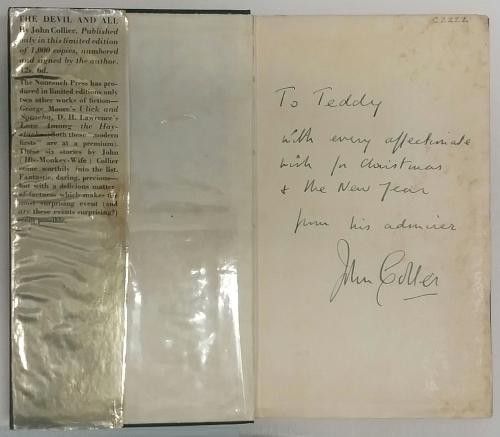 THE DEVIL AND ALL
By John Collier. Published
only in this limited edition
of 1,000 copies, numbered
and signed by the author.
12s. 6d.
The Nonesuch Press has pro-
duced in limited editions only
two other works of fiction—
George Moore's Ulick and
Soracha, D. H. Lawrence's
Love Among the Hay-
stacks (both these "modern
firsts" are at a premium).
These six stories by John
(His-Monkey-Wife) Collier
come worthily into the list.
Fantastic, daring, precious—
but with a delicious matter-
of-factness which makes the
most surprising event (and
are these events surprising?)
seem possible.
C2222
To Teddy
with every affectionate
wish for Christmas
& the New Year
from his admirer
John Collier